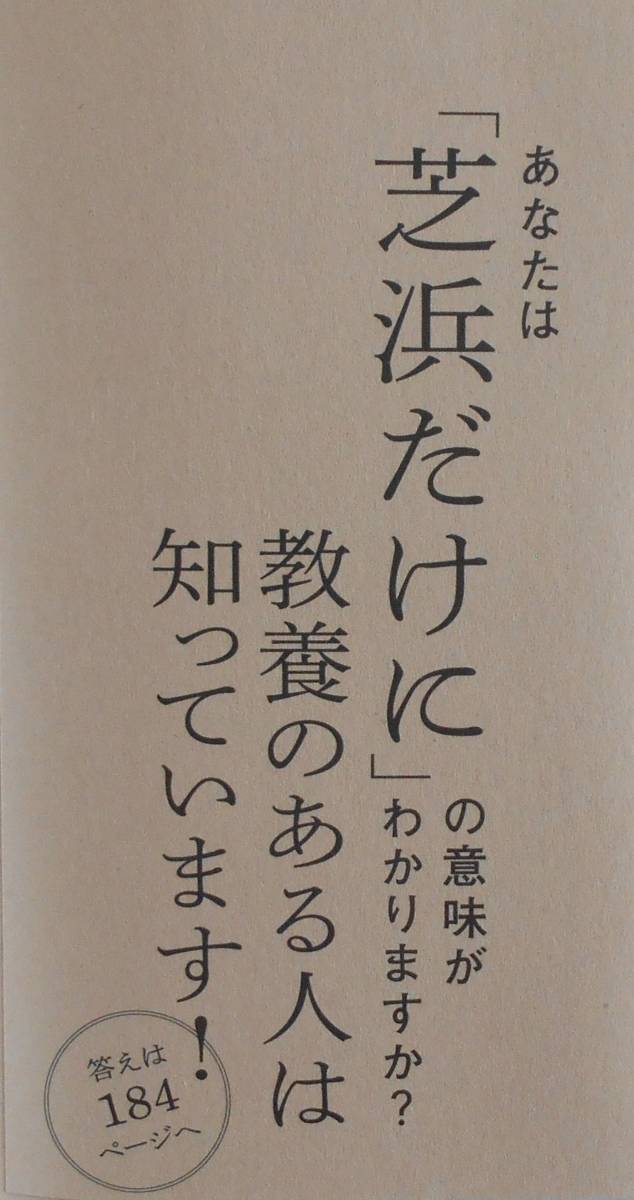 あなたは
「芝浜だけに」
の意味が
わかりますか？
教養のある人は
知っています！
答えは
184
ページへ